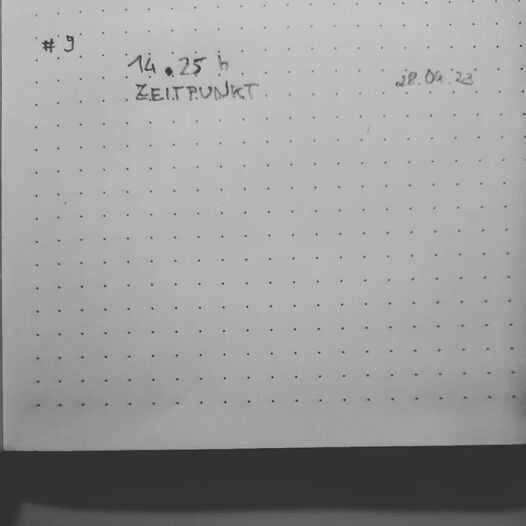 #9
14.25 h
ZEITPUNKT
28.09.23